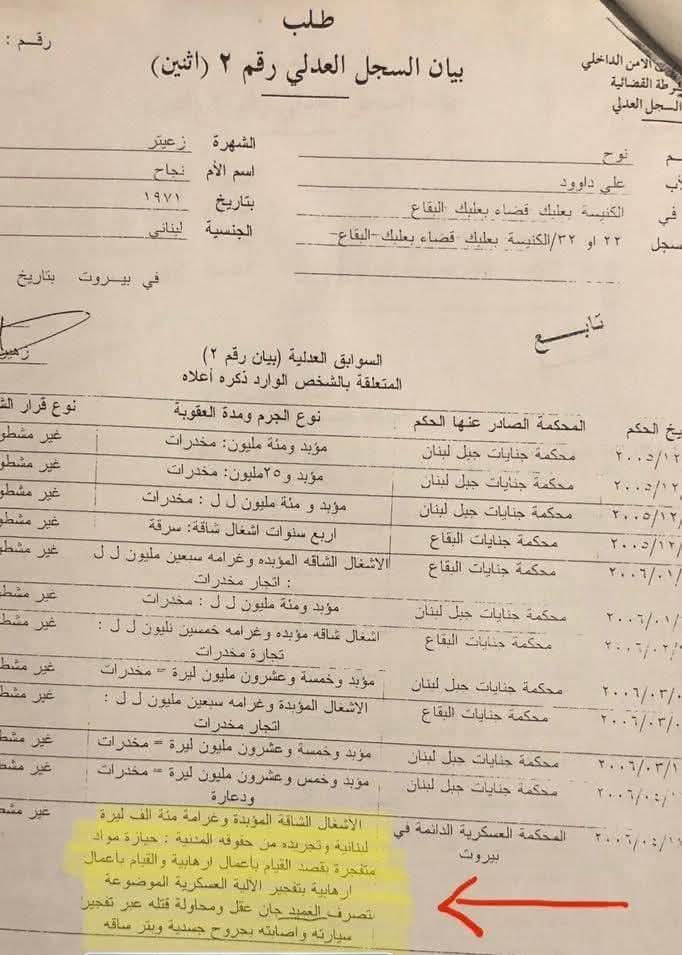 طلب
بيان السجل العدلي رقم ٢ (اثنين)
رقم :
الامن الداخلي
القضائية
السجل العدلي
نوح الشهرة زعيتر
علي داوود اسم الأم نجاح
في الكنيسة بعلبك قضاء بعلبك البقاع بتاريخ ١٩٧١
٢٢ او ٣٢/الكنيسة بعلبك قضاء بعلبك-البقاع- الجنسية لبناني
في بيروت بتاريخ
تابع
السوابق العدلية (بيان رقم ٢)
المتعلقة بالشخص الوارد ذكره أعلاه
الحكم المحكمة الصادر عنها الحكم نوع الجرم ومدة العقوبة نوع قرار
٢٠٠٥/١٢ محكمة جنايات جبل لبنان مؤبد ومئة مليون: مخدرات غير
٢٠٠٥/١٢ محكمة جنايات جبل لبنان مؤبد و٢٥مليون: مخدرات غير
٢٠٠٥/١٢/ محكمة جنايات جبل لبنان مؤبد و مئة مليون ل ل : مخدرات غير
٢٠٠٥/١٢/ محكمة جنايات البقاع اربع سنوات اشغال شاقة: سرقة غير
٢٠٠٦/٠١/ محكمة جنايات البقاع الاشغال الشاقه المؤبده وغرامه سبعين مليون ل ل غير
: اتجار مخدرات
٢٠٠٦/٠١/ محكمة جنايات جبل لبنان مؤبد ومئة مليون ل ل : مخدرات غير
٢٠٠٦/٠٢/ محكمة جنايات البقاع اشغال شاقه مؤبده وغرامه خمسين نليون ل ل : غير
تجارة مخدرات
٢٠٠٦/٠٣/ محكمة جنايات جبل لبنان مؤبد وخمسة وعشرون مليون ليرة = مخدرات غير
٢٠٠٦/٠٣/ محكمة جنايات البقاع الاشغال المؤبدة وغرامه سبعين مليون ل ل : غير
اتجار مخدرات
٢٠٠٦/٠٣/١ محكمة جنايات جبل لبنان مؤبد وخمسة وعشرون مليون ليرة = مخدرات غير
٢٠٠٦/٠٤/ محكمة جنايات جبل لبنان مؤبد وخمس وعشرون مليون ليرة = مخدرات غير
ودعارة
٢٠٠٦/٠٤/١ المحكمة العسكرية الدائمة في الاشغال الشاقة المؤبدة وغرامة مئة الف ليرة غير
بيروت لبنانية وتجريده من حقوقه المدنية : حيازة مواد
متفجرة بقصد القيام بأعمال ارهابية والقيام باعمال
ارهابية بتفجير الالية العسكرية الموضوعة
بتصرف العميد جان عقل ومحاولة قتله عبر تفجير
سيارته واصابته بجروح جسدية وبتر ساقه